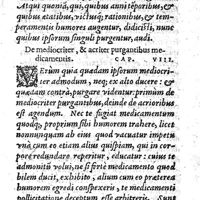 Atqui quoniã, qui, quibus anni tẽporibus, &
quibus ætatibus, victusq́; rationibus, & tem-
peramentis humores augentur, didicisti, nunc
quibus ipsorum singuli purgentur, audi.
De mediocriter, & acriter purgantibus me-
dicamentis. CAP. VIII.
VErùm quia quadam ipsorum medioci-
ter admodum, neq; ex alto ducere: &
quædam contrà, purgare videntur: primùm de
mediocriter purgantibus, deinde de acrioribus
est agendum. Nec te fugiat medicamentum
quodq́; proprium sibi humorem trahere, licet
nonnunquam ab eius quod vacuatur impetu
vnà cum eo etiam alius quispiam, qui in cor-
pore redundare reperitur, educatur: cuius te
admonitũ volui, ne si fortè medicamento quod
bilem ducit, exhibito, alium cum eo præterea
humorem egredi conspexeris, te medicamenti
pollicitatione deceptum esse arbitreris. Sunt